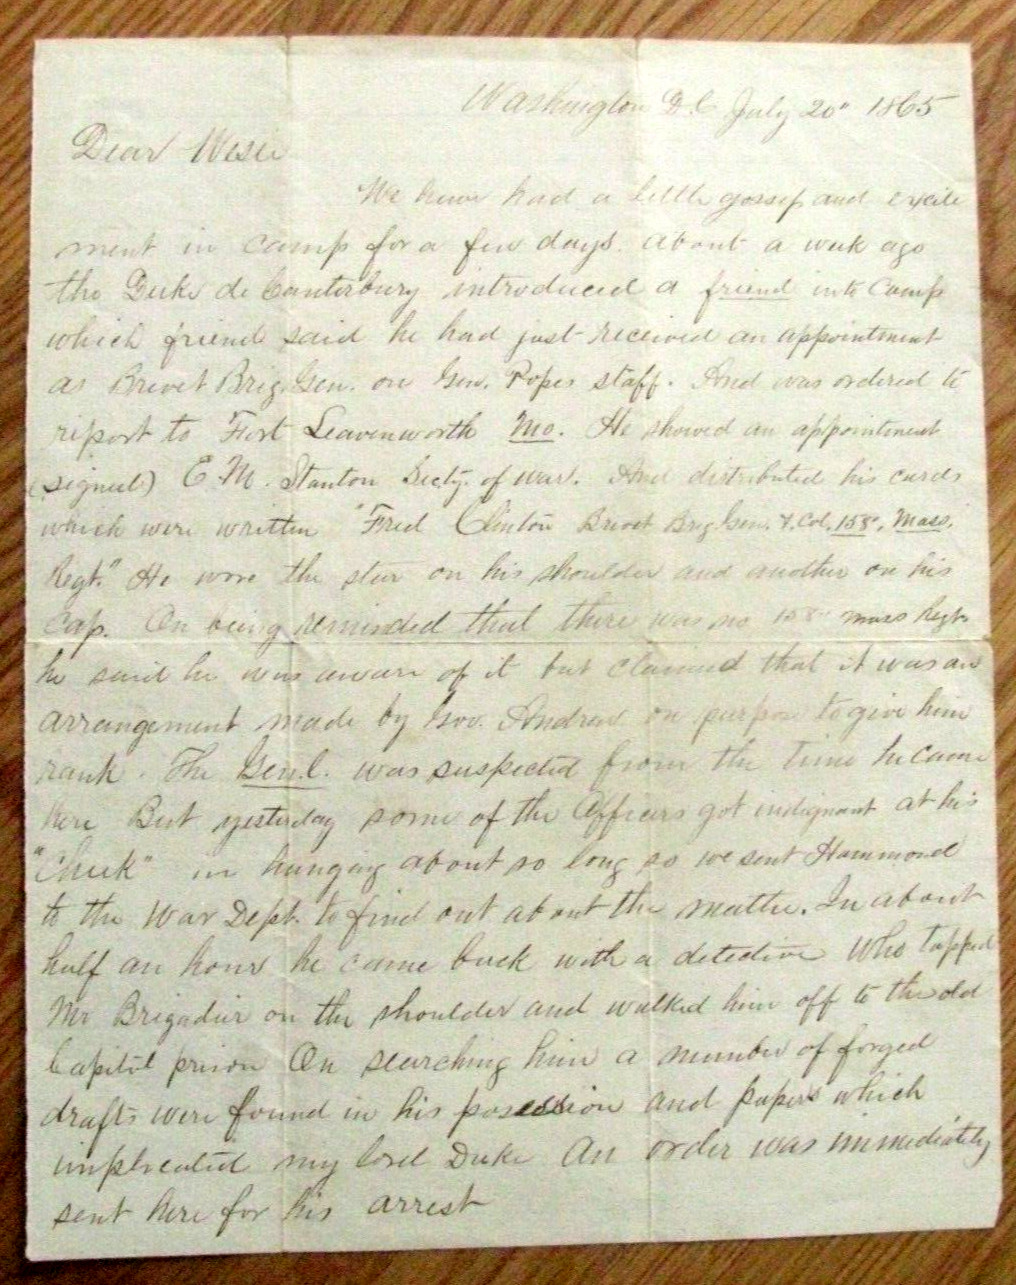 Washington D.C. July 20" 1865
Dear Wesie
We have had a little gossip and excite
ment in camp for a few days. about a week ago
the Duke de Canterbury introduced a friend into Camp
which friend said he had just received an appointment
as Brevet Brig. Gen. on Gen. Popes staff. And was ordered to
report to Fort Leavenworth Mo. He showed an appointment
(signed) E M. Stanton Secty. of war. And distributed his cards
which were written "Fred Clinton Brevet Brig. Gen. & Col. 158", Mass.
Regt." He wore the star on his shoulder and another on his
Cap. On being reminded that there was no 158" mass Regt.
he said he was aware of it but claimed that it was an
arrangement made by Gov. Andrew on purpose to give him
rank. The Genl. was suspected from the time he came
here But yesterday some of the Officers got indignant at his
"Cheek" in hanging about so long so we sent Hammond
to the War Dept. to find out about the matter. In about
half an hour he came back with a detective who tapped
Mr Brigadier on the shoulder and walked him off to the old
Capitol prison On searching him a number of forged
drafts were found in his posession and papers which
implicated my lord Duke An order was immediately
sent here for his arrest